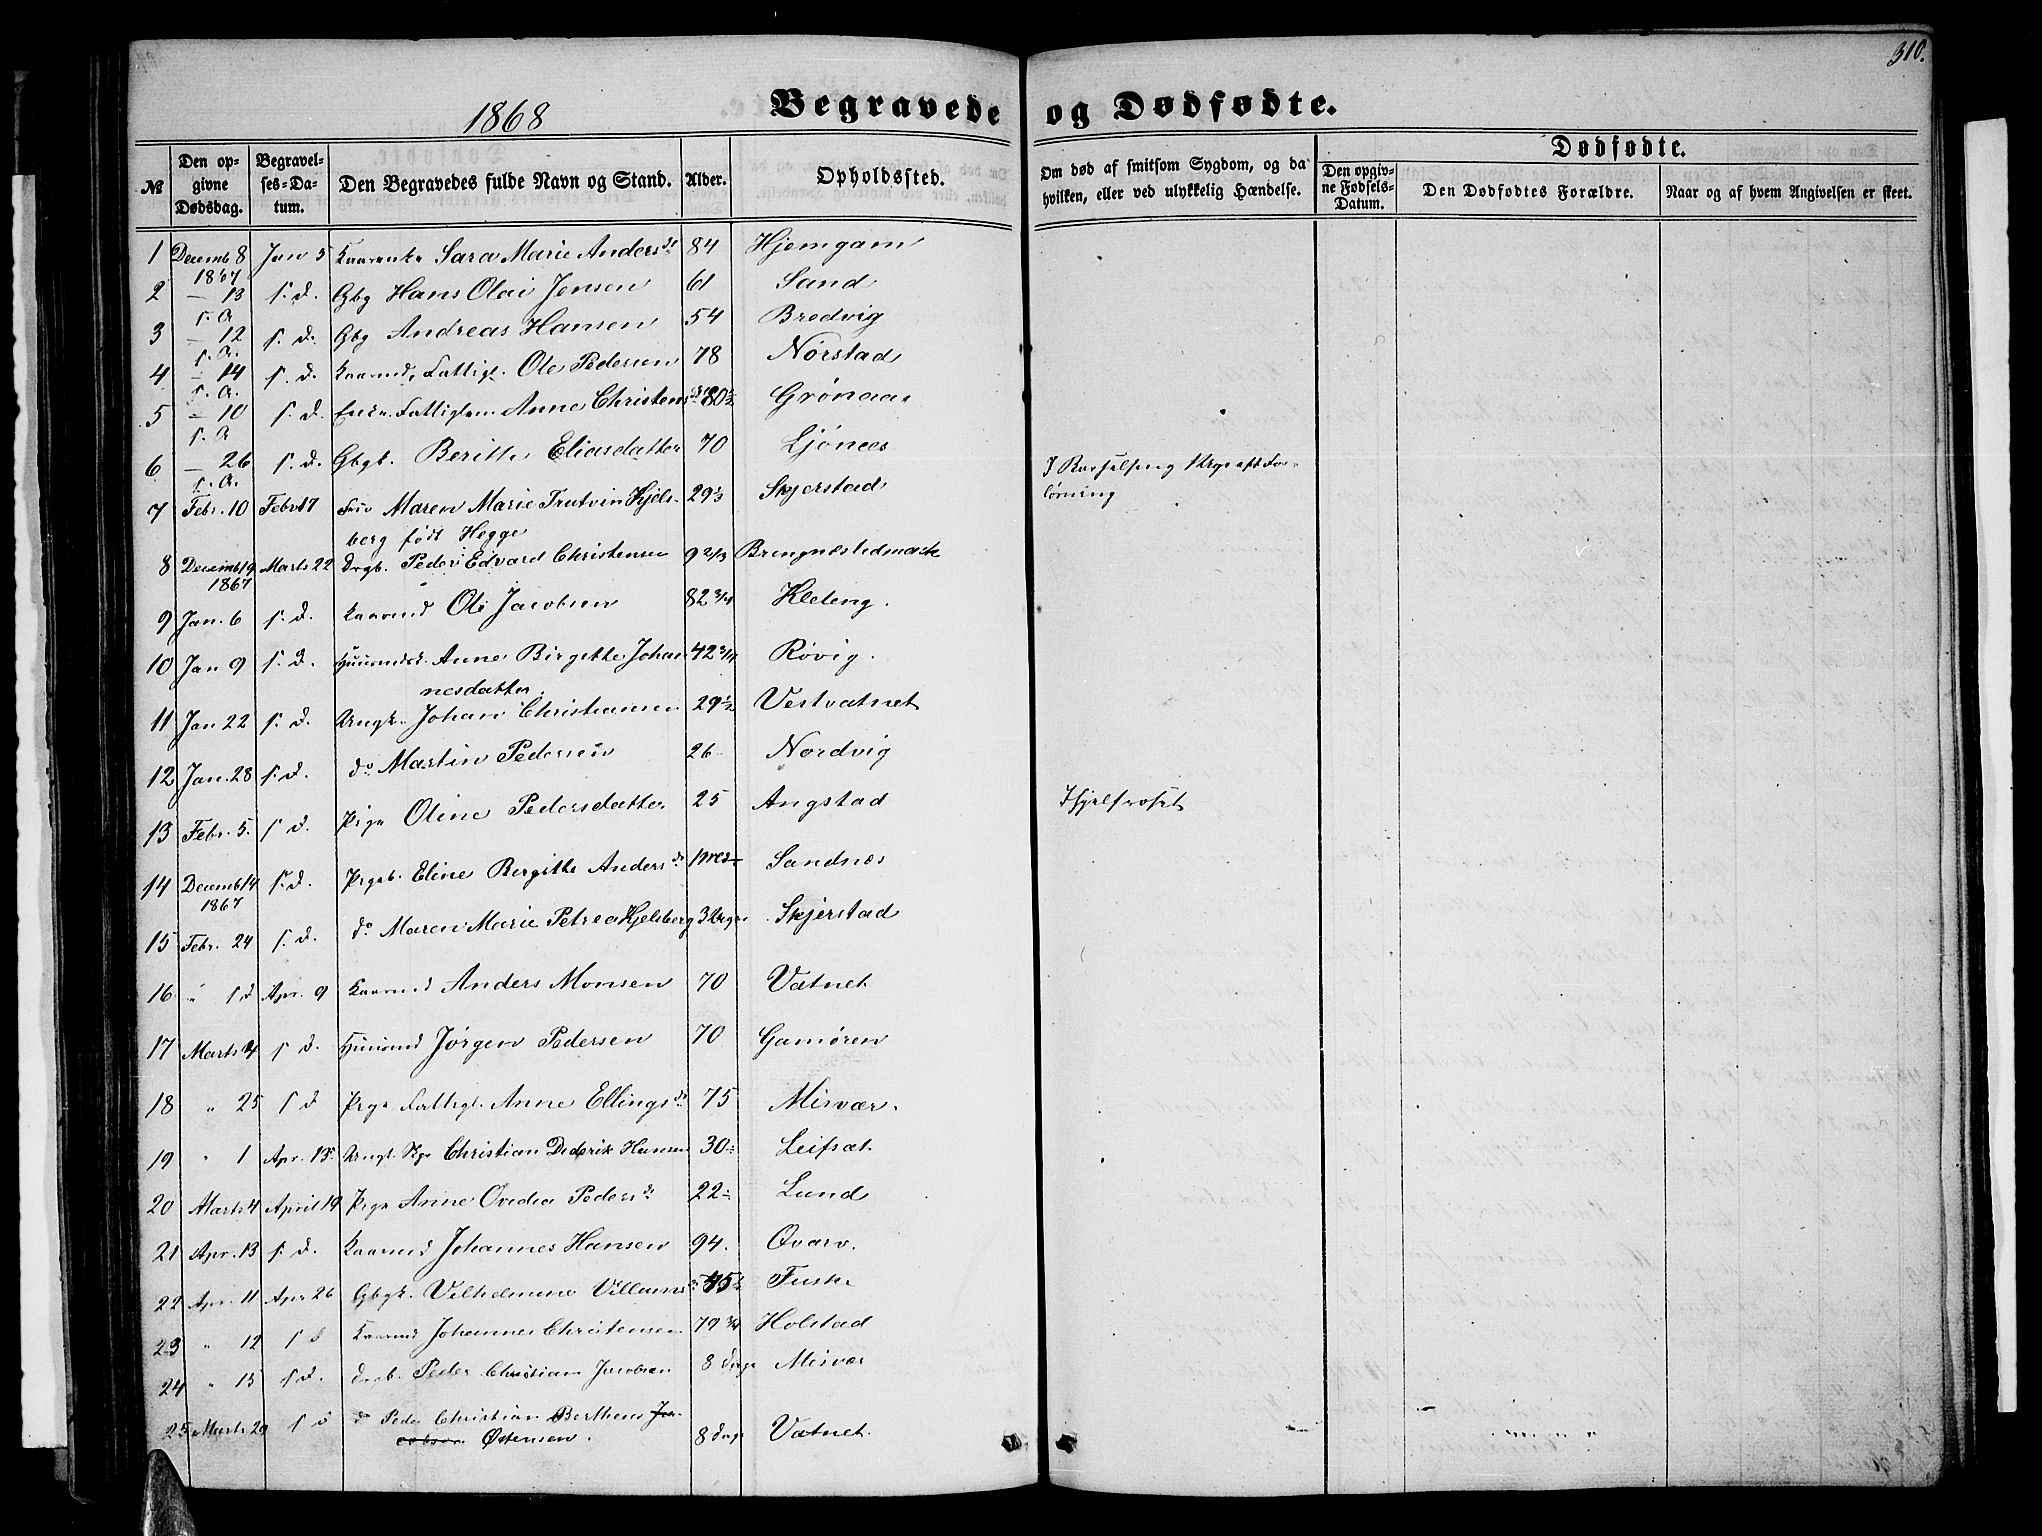 310.
1868
Begravede og Dødfødte.
№
Den opgivne Dødsdag.
Begravelses-Datum.
Den Begravedes fulde Navn og Stand.
Alder.
Opholdssted.
Om død af smitsom Sygdom, og da hvilken, eller ved ulykkelig Hændelse.
Dødfødte.
Den opgivne Fødsels-Datum.
Den Dødfødtes Forældre.
Naar og af hvem Angivelsen er skeet.
1 Decemb 8 1867 Jan 5 Sara Marie Andersdr 84 Hjemgam
2 — 13 s. A. s. d. Gbg Hans Olai Jensen 61 Sand
3 — 12 s. A. s. d. Gbg Andreas Hansen 54 Bredvig
4 — 14 s. A. s. d. Kaarmd, Fattigl. Ole Pedersen 78 Nørstad
5 — 10 s. A. s. d. Enke Anne Christensdr 80½
6 — 26 s. A. s. d. Gbgk. Berithe Eliasdatter 70 Ljønæs
7 Febr. 10 Febr 17 Maren Marie Trutvin Kjels-
berg født Hegge 29⅓ Skjerstad
8 Decemb 19 1867 Marts 22 Drgb. Peder Edvard Christensen 9 2/3
9 Jan. 6 s. d. Kaarmd Ole Jacobsen 82 3/4 Kleteng.
10 Jan 9 s. d. Huusmdsk. Anne Birgitte Johan
nesdatter. 42 3/4 Røvig.
11 Jan 22 s. d. Ungk. Johan Christiansen 29½ Vestvatnet
12 Jan. 28 s. d. do Martin Pedersen 26 Nordvig
13 Febr. 5. s d. Pige Oline Pedersdatter 25 Angstad Ihjelfroset
14 Decemb 14 1867 s. d. Pigeb. Eline Bergitte Andersdr Sandnes
15 Febr. 24 s. d. do Maren Marie Petrea Kjelsberg 3 Uger Skjerstad
16 " s d Apr. 9 Kaarmd Anders Monsen 70 Vatnet
17 Marts 4 s d. Huusmd Jørgen Pedersen 70 Gamøren
18 " 25 s d Pige Fattigl. Anne Ellingsdr 75 Misvær.
19 " 1 Apr. 13 Christian Diderik Hansen 30 Leifsæt
20 Marts 4 April 19 Pige Anne Ovedia Pedersdr 22 Lund
21 Apr. 13 s. d. Kaarmd Johannes Hansen 94. Qvarv.
22 Apr. 11 Apr 26 Gbgk. Vilhelmine Fuske
23 " 12 s d Kaarmd Johannes Christensen 79 3/4 Holstad
24 " 13 s d. Drgb. Peder Christian Jacobsen 8 dage Misvær
25 Marts 20 s d d Peder Christian Berthens Ja-
cobsen Østensen. 8 dage Vatnet.
I Barselseng
løsning